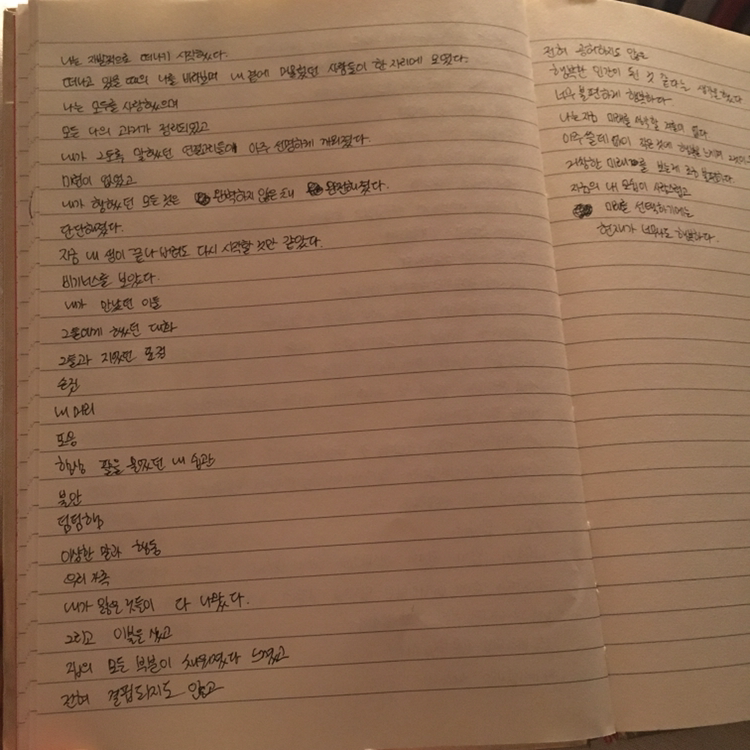 나는 자발적으로 떠나기 시작했다.
떠나고 있을 때의 나를 바라보며 내 곁에 머물렀던 사람들이 한 자리에 모였다.
나는 모두를 사랑했으며
모든 나의 과거가 정리되었고
내가 그토록 말했던 연결고리들이 아주 선명하게 개외됐다.
미련이 없었고
내가 행했던 모든 것은 완벽하지 않은 채 완전해졌다.
단단해졌다.
지금 내 생이 끝나 다시 시작할 것만 같았다.
비기너스를 보았다.
내가 만났던 이들
그들에게 했던 대화
그들과 지었던 표정
손짓
내 머리
포옹
항상 짐을 옮겼던 내 습관
불안
덤덤함
이상한 말과 행동
우리 가족
내가 잃은 것들이 다 나왔다.
그리고 이불을 샀고
집의 모든 부분이 채워졌다 느꼈고
전혀 결핍되지도 않고
전혀 공허하지도 않고
행복한 인간이 된 것 같다는 생각을 했다
너무 불편하게 행복하다
나는 지금 미래를 생각할 겨를이 없다.
아주 쓸데없이 작은 것에 행복을 느끼며
거창한 미래를 보는게 조금 불편하다.
지금의 내 모습이 사랑스럽고
미래를 선택하기에는
현재가 너무나도 행복하다.